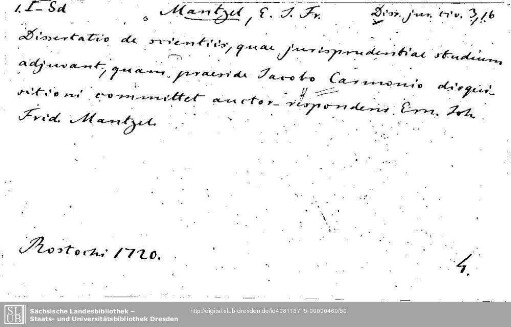 1. I-Sd
Mantzel, E. J. Fr. Diss. jur. civ. 3,16
Dissertatio de scientiis, quae jurisprudentiae studium
adjuvant, quam praeside Jacobo Carmonio disqui-
sitioni committet auctor respondens Ern. Joh.
Frid. Mantzel.
Rostochi 1720.
4.
Sächsische Landesbibliothek –
Staats- und Universitätsbibliothek Dresden